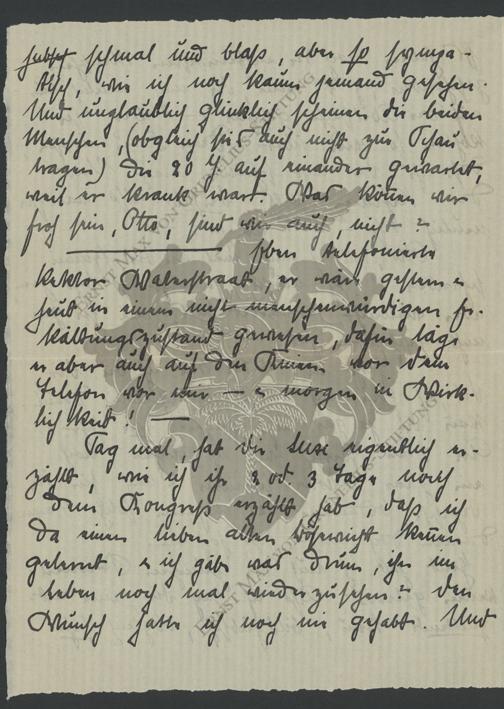 hübsch schmal und blaß, aber so sympa-
tisch, wie ich noch kaum jemand gesehen.
Und unglaublich glücklich scheinen die beiden
Menschen, (obgleich sie's auch nicht zur Schau
tragen) die 20 J auf einander gewartet,
weil er krank war. Was können wir
froh sein, Otto, sind wir auch, nicht?
Eben telefonierte
Rektor Walerstraat, er wäre gestern u
heut in einem nicht menschenwürdigen Er-
kältungszustand gewesen, dafür läge
er aber auch auf den Knien vor dem
Telefon vor mir — u morgen in Wirk-
lichkeit! —
Sag mal, hat die Suse eigentlich er-
zählt, wie ich ihr 2 od. 3 Tage nach
dem Kongreß erzählt hab, daß ich
da einen lieben alten Bösewicht kennen
gelernt, u ich gäbe was drum, ihn im
Leben noch mal wiederzusehen? Den
Wunsch hatte ich noch nie gehabt. Und
ERNST MAX VON
STIFTUNG
ERNST MAX
STIFTUNG